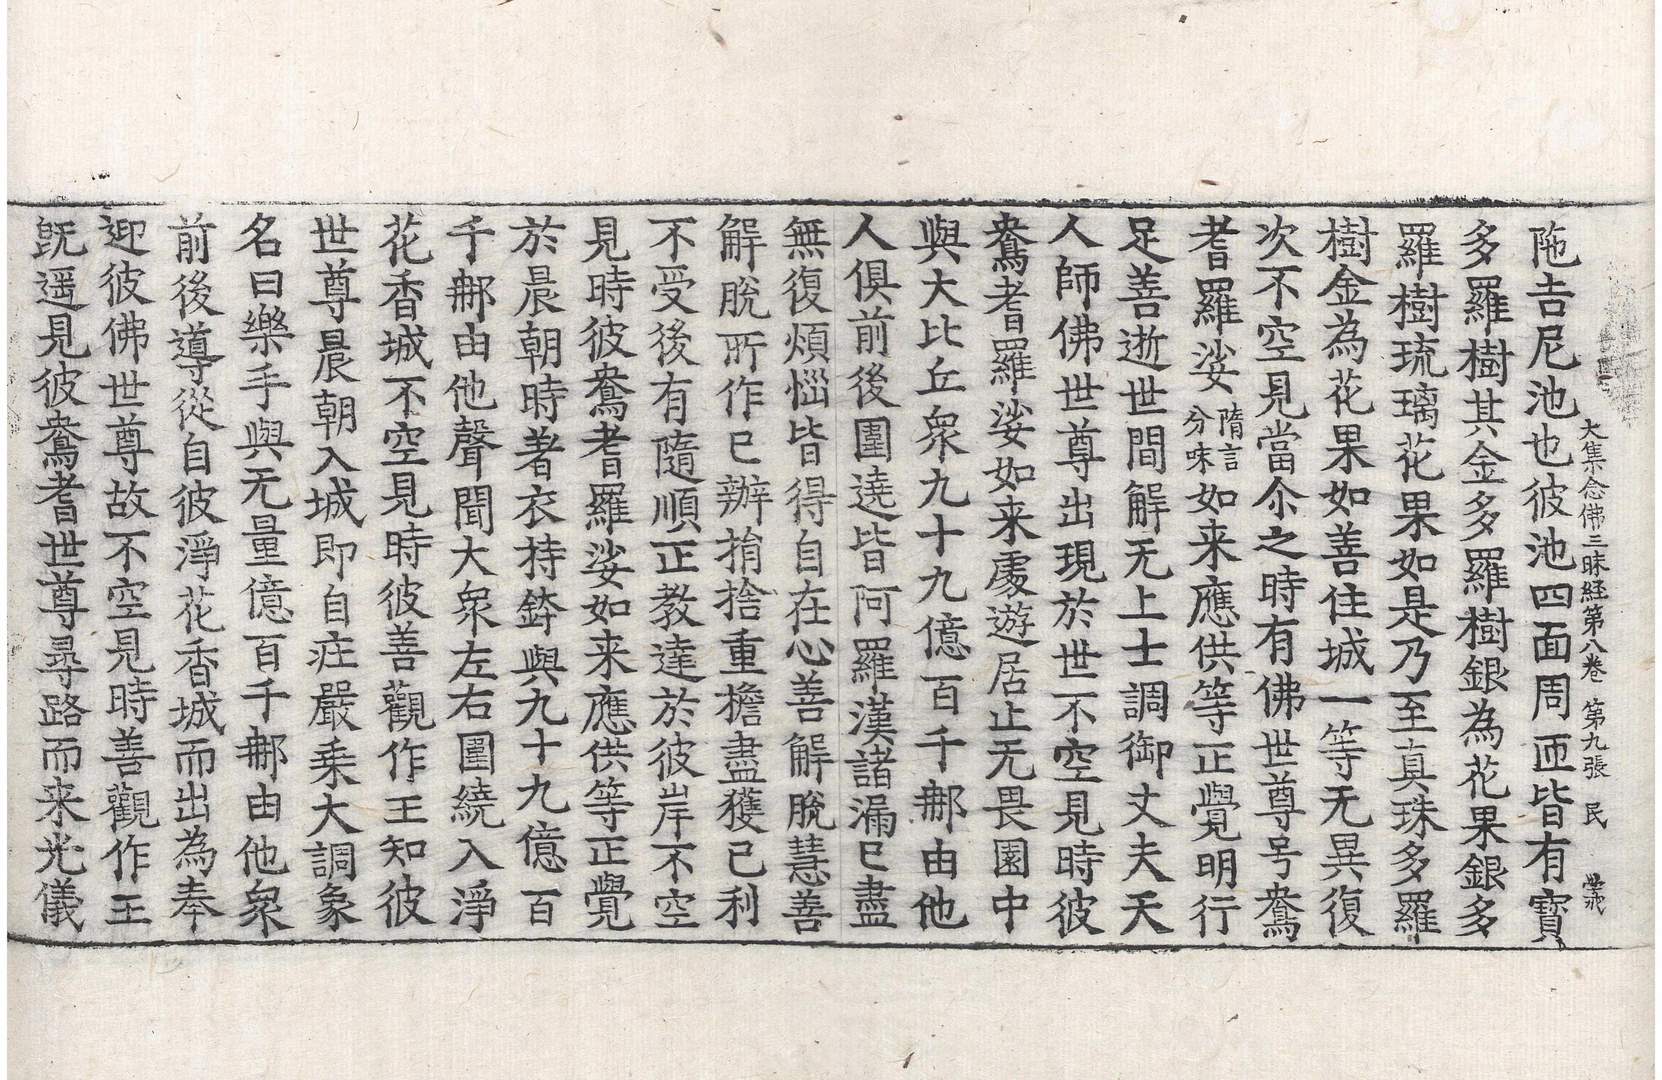 大集念佛三昧経第八卷 第九張 民
陁吉尼池也彼池四面周匝皆有寶
多羅樹其金多羅樹銀為花果銀多
羅樹琉璃花果如是乃至真珠多羅
樹金為花果如善住城一等无異復
次不空見當尒之時有佛世尊号鴦
耆羅娑隋言分味如来應供等正覺明行
足善逝世間解无上士調御丈夫天
人師佛世尊出現於世不空見時彼
鴦耆羅娑如来處遊居止无畏園中
與大比丘衆九十九億百千那由他
人俱前後圍遶皆阿羅漢諸漏已盡
無復煩惱皆得自在心善解脫慧善
解脫所作已辦捐捨重擔盡獲已利
不受後有隨順正教達於彼岸不空
見時彼鴦耆羅娑如来應供等正覺
於晨朝時著衣持鉢與九十九億百
千那由他聲聞大衆左右圍繞入淨
花香城不空見時彼善觀作王知彼
世尊晨朝入城即自庄嚴乘大調象
名曰樂手與无量億百千那由他衆
前後導從自彼淨花香城而出為奉
迎彼佛世尊故不空見時善觀作王
旣遥見彼鴦耆世尊尋路而来光儀